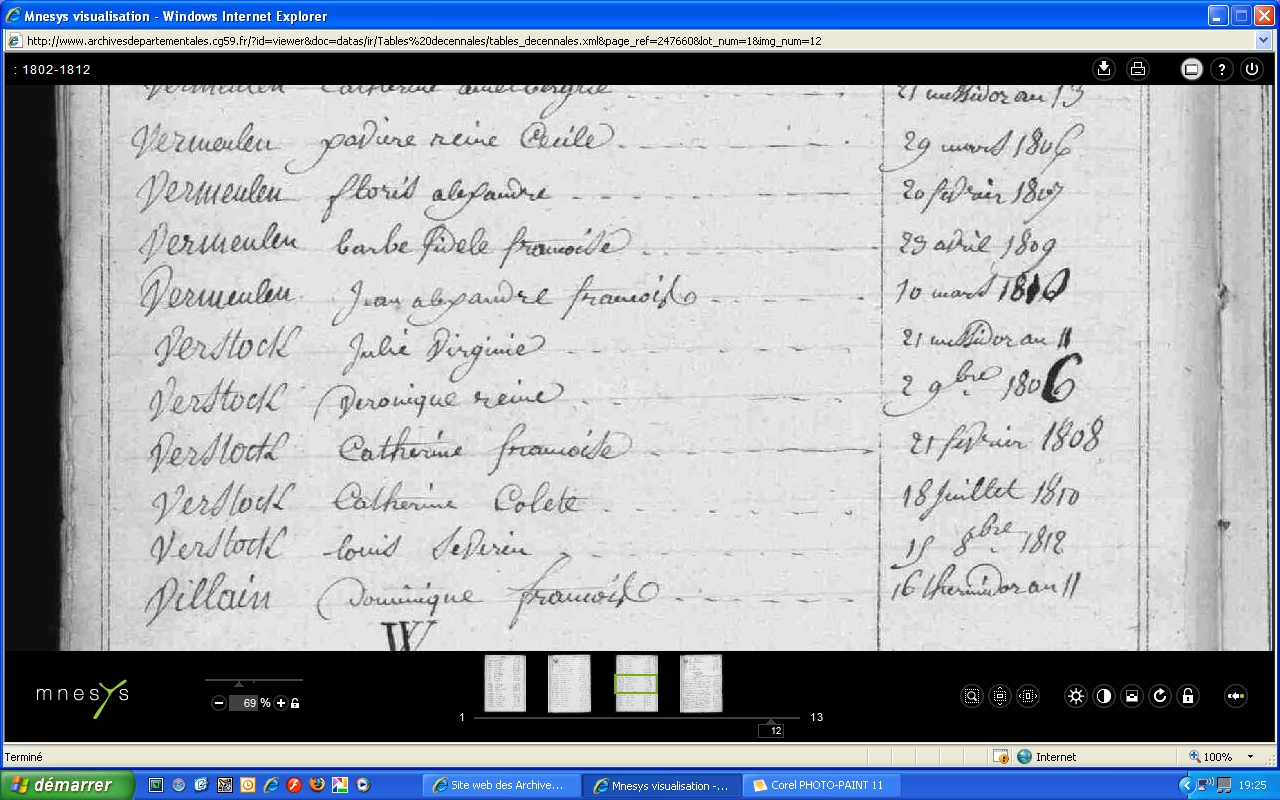 Mnesys visualisation - Windows Internet Explorer
http://www.archivesdepartementales.cg59.fr/?id=viewer&doc=datas/ir/Tables%20decennales/tables_decennales.xml&page_ref=247660&lot_num=1&img_num=12
: 1802-1812
Vermeulen Catherine 21 messidor an 13
Vermeulen reine Cecile 29 mars 1806
Vermeulen floris alexandre 20 fevrier 1807
Vermeulen barbe fidele francoise 23 avril 1809
Vermeulen Jean alexandre francois 10 mars 1810
Verstock Julie Virginie 21 messidor an 11
Verstock Veronique reine 2 9bre 1806
Verstock Catherine francoise 21 fevrier 1808
Verstock Catherine Colete 18 Juillet 1810
Verstock louis Severin 15 8bre 1812
Villain Dominique francois 16 thermidor an 11
W
mnesys
69 %
1
13
12
Terminé
Internet
100%
démarrer
Site web des Archive...
Mnesys visualisation -...
Corel PHOTO-PAINT 11
19:25